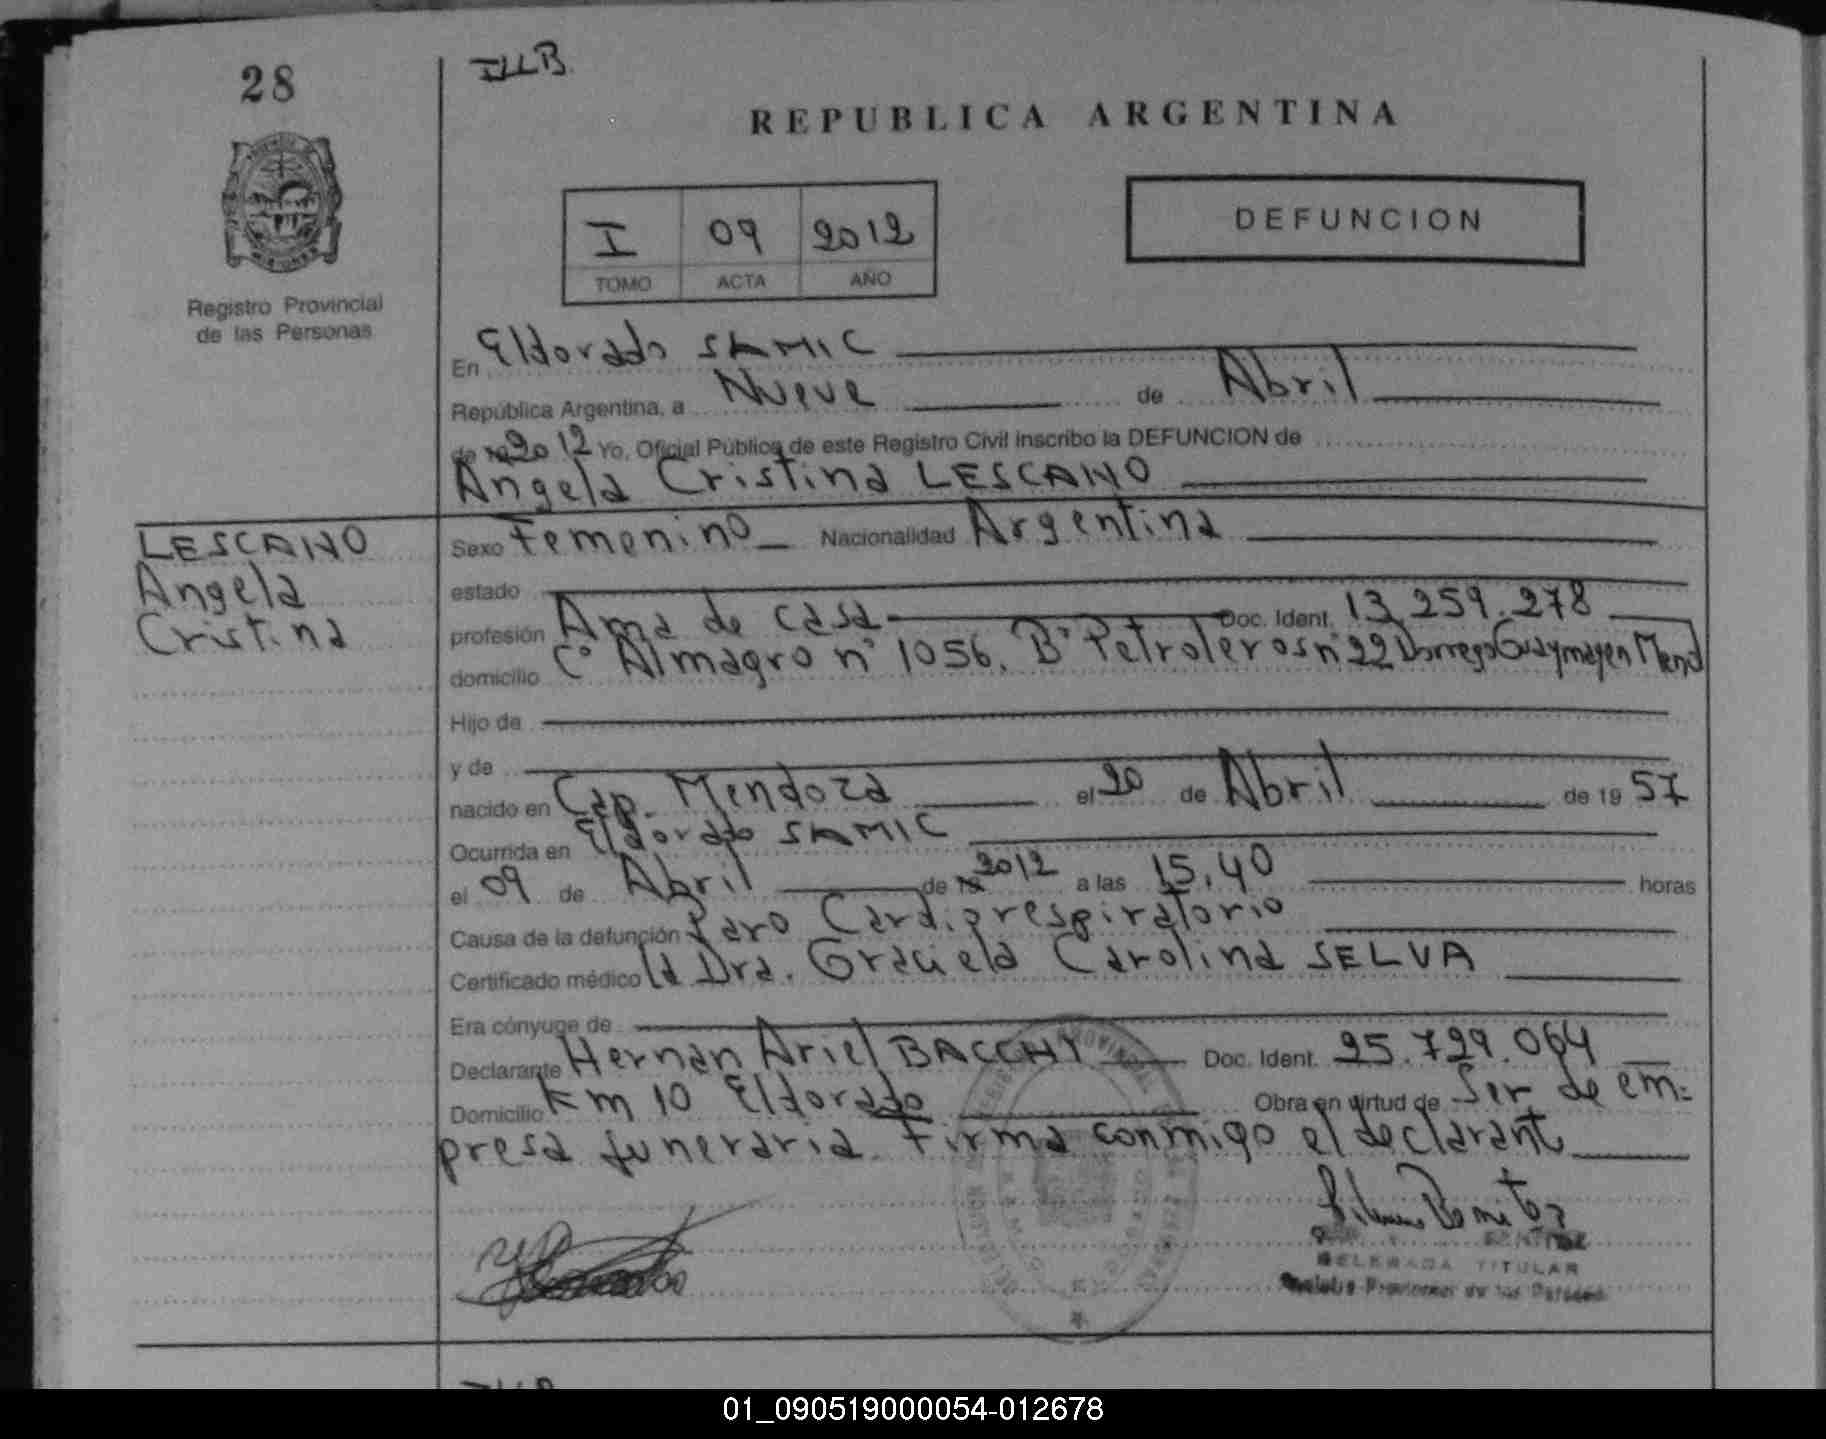 28
ILLB
REPUBLICA ARGENTINA
I 09 2012
TOMO ACTA AÑO
DEFUNCION
Registro Provincial
de las Personas
En Eldorado SAMIC
República Argentina, a Nueve de Abril
de 19 2012 Yo, Oficial Público de este Registro Civil inscribo la DEFUNCION de
Angela Cristina LESCANO
LESCANO
Angela
Cristina
Sexo Femenino Nacionalidad Argentina
estado
profesión Ama de casa Doc. Ident. 13.259.278
domicilio C° Almagro n° 1056. B° Petroleros n° 22 Dorrego Guaymayen Mend
Hijo de
y de
nacido en Cap. Mendoza el 20 de Abril de 19 57
Ocurrida en Eldorado SAMIC
el 09 de Abril de 19 2012 a las 15,40 horas
Causa de la defunción Paro Cardiorespiratorio
Certificado médico la Dra. Graciela Carolina SELVA
Era cónyuge de
Declarante Hernan Ariel BACCHY Doc. Ident. 25.729.064
Domicilio Km 10 Eldorado Obra en virtud de Ser de em=
presa funeraria. Firma conmigo el declarante
DELEGADA TITULAR
Registro Provincial de las Personas
01_090519000054-012678